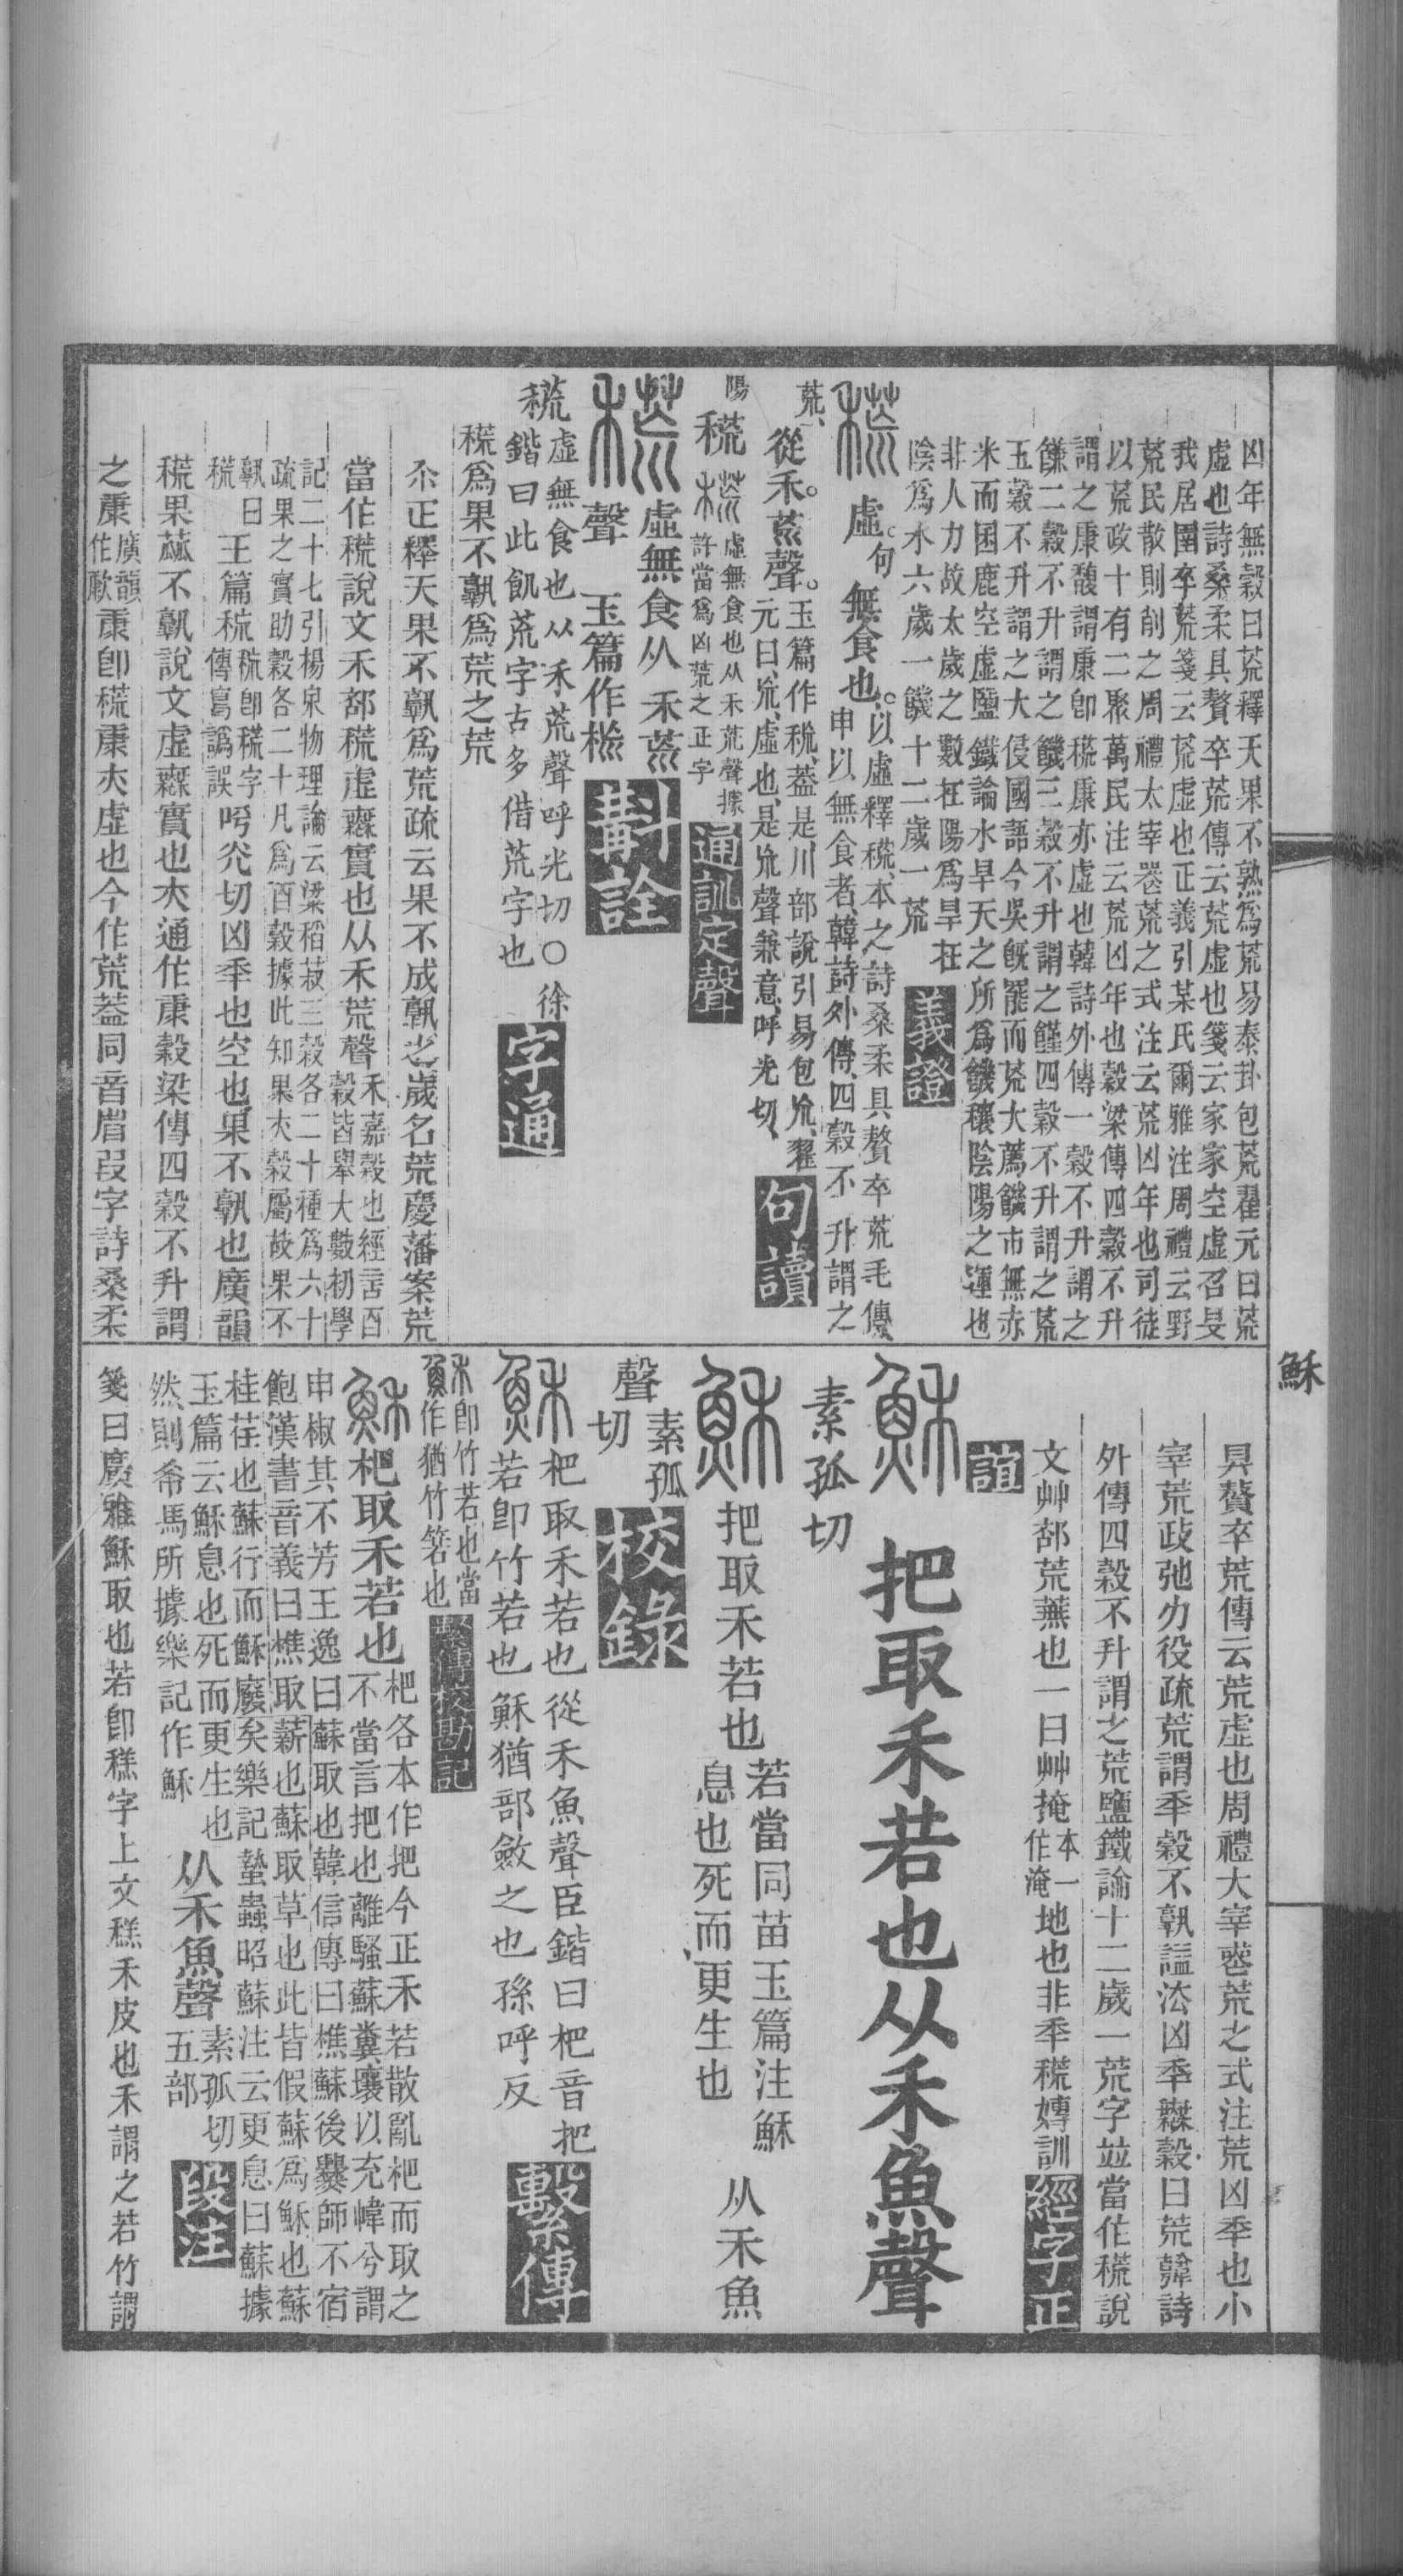 凶年無穀曰荒釋天果不熟爲荒易泰卦包荒翟元曰荒
虛也詩桑柔具贅卒荒傳云荒虛也箋云家家空虛召旻
我居圉卒荒箋云荒虛也正義引某氏爾雅注周禮云野
荒民散則削之周禮太宰喪荒之式注云荒凶年也司徒
以荒政十有二聚萬民注云荒凶年也穀梁傳四穀不升
謂之康馥謂康卽䆲康亦虛也韓詩外傳一穀不升謂之
饑二穀不升謂之饑三穀不升謂之饉四穀不升謂之荒
五穀不升謂之大侵國語今吳旣罷而荒大薦饑市無赤
米而囷鹿空虛鹽鐵論水旱天之所爲饑穰陰陽之運也
非人力故太歲之數在陽爲旱在
陰爲水六歲一饑十二歲一荒
義證
虛。句無食也。
以虛釋䆲本之詩桑柔具贅卒荒毛傳
申以無食者韓詩外傳四穀不升謂之
荒、
從禾㡃聲。
玉篇作稅葢是川部說引易包㡃翟
元曰㡃虛也是㡃聲兼意呼光切
句讀
陽
䆲
虛無食也从禾荒聲據
許當爲凶荒之正字
通訓定聲
虛無食从禾㡃
聲 玉篇作𥞑
斠詮
虛無食也从禾荒聲呼光切〇徐
鍇曰此飢荒字古多借荒字也
字通
䆲爲果不孰爲荒之荒
尒正釋天果不孰爲荒疏云果不成孰之歲名荒慶藩案荒
當作䆲說文禾部䆲虛無實也从禾荒聲
禾嘉穀也經言百
穀皆舉大數初學
記二十七引楊泉物理論云粱稻菽三穀各二十種爲六十
疏果之實助穀各二十凡爲百穀據此知果亦穀屬故果不
孰曰
䆲
玉篇𥞑
𥞑卽䆲字
傳寫譌誤
呼光切凶年也空也果不孰也廣韻
䆲果蓏不孰說文虛無實也亦通作康穀梁傳四穀不升謂
之康
廣韻
作歉
康卽䆲康亦虛也今作荒葢同音叚字詩桑柔
穌
具贅卒荒傳云荒虛也周禮大宰喪荒之式注荒凶年也小
宰荒政弛力役疏荒謂年穀不孰諡法凶年無穀曰荒韓詩
外傳四穀不升謂之荒鹽鐵論十二歲一荒字竝當作䆲說
文艸部荒蕪也一曰艸掩
本一
作淹
地也非年䆲專訓
經字正
誼
把取禾若也从禾魚聲
素孤切
把取禾若也
若當同苗玉篇注穌
息也死而更生也
从禾魚
聲
素孤
切
校錄
杷取禾若也從禾魚聲臣鍇曰杷音把
若卽竹若也穌猶部斂之也孫呼反
繫傳
卽竹若也當
作猶竹箬也
繫傳校勘記
杷取禾若也
杷各本作把今正禾若散亂杷而取之
不當言把也離騷蘇糞壤以充幃兮謂
申椒其不芳王逸曰蘇取也韓信傳曰樵蘇後爨師不宿
飽漢書音義曰樵取薪也蘇取草也此皆假蘇爲穌也蘇
桂荏也蘇行而穌廢矣樂記蟄蟲昭蘇注云更息曰蘇據
玉篇云穌息也死而更生也
然則希馮所據樂記作穌
从禾魚聲
素孤切
五部
段注
箋曰廣雅穌取也若卽䅵字上文䅵禾皮也禾謂之若竹謂